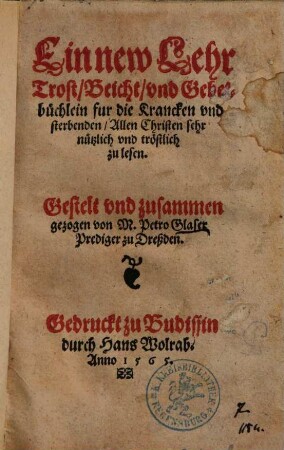 Ein new Lehr
Trost/Beicht/vnd Gebet
büchlein fur die Krancken vnd
sterbenden/Allen Christen sehr
nützlich vnd tröstlich
zu lesen.
Gestelt vnd zusammen
gezogen von M. Petro Glaser
Prediger zu Dreßden.
Gedruckt zu Budissin
durch Hans Wolrab.
Anno 1565.